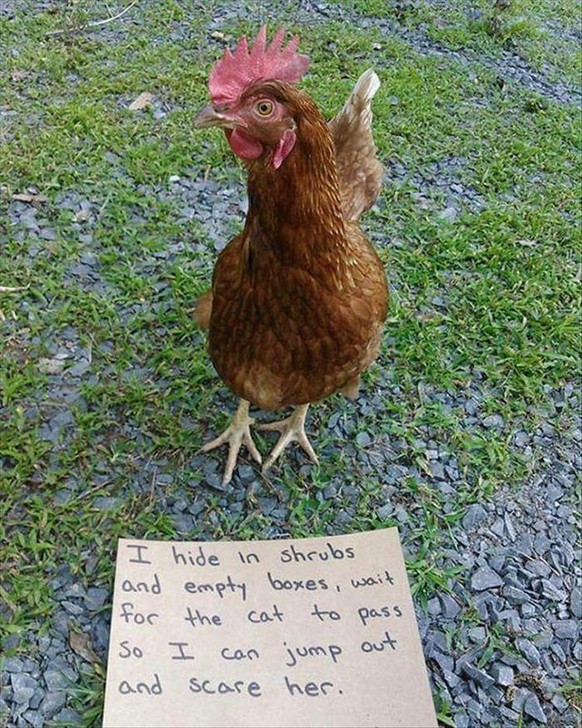 I hide in shrubs
and empty boxes, wait
for the cat to pass
So I can jump out
and scare her.